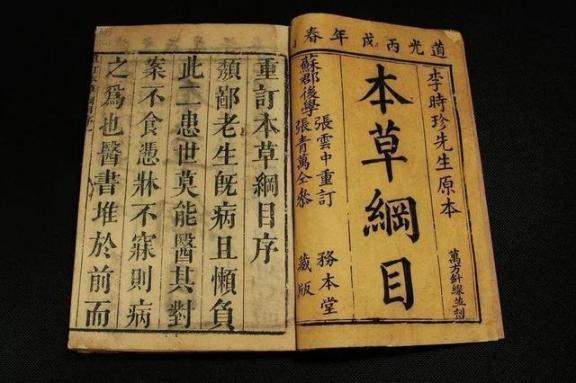 道光丙戌年春
李時珍先生原本
本草綱目
萬方針線並刻
張雲中重訂
蘇郡後學
張青萬仝參
務本堂
藏版
重訂本草綱目序
纇鄙老生旣病且懶負
此二患世莫能醫其對
案不食憑牀不寐則病
之爲也醫書堆於前而